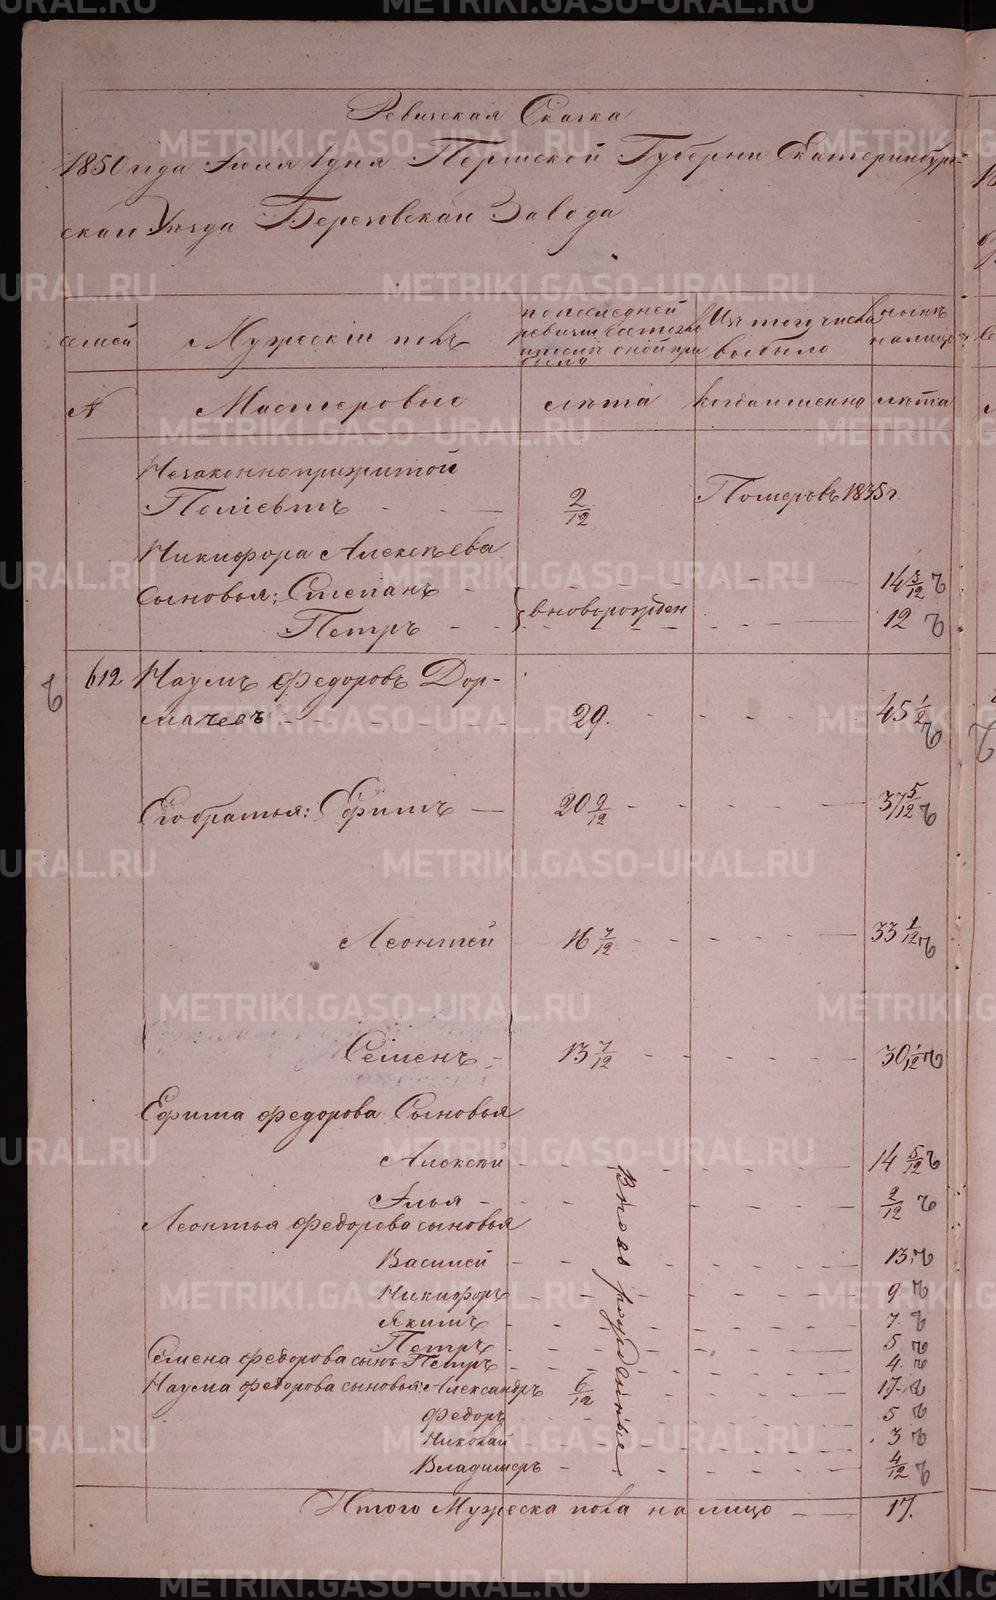 Ревижская Сказка
1850 года Июля 1 дня Пермской Губерни Екатеринбург-
скаго Уезда Березовскаго Завода
семей Мужескiй полъ по последней ревизiи состояло и после оной прибыло Изъ того числа выбыло ныне на лицо
№ Мастеровые лѣта когда именно лѣта
Незаконноприжитой
Полiевктъ 2/12 Померъ въ 1835 г.
Никифора Алексѣева
Сыновья: Степанъ 14 3/12
Петръ вновь рожден 12
612 Наумъ Федоровъ Дор-
мачевъ 29. 45 1/2
Его братья: Ефимъ 20 9/12 37 5/12
Леонтей 16 7/12 33 1/12
Семенъ 13 7/12 30 1/12
Ефима Федорова Сыновья
Алексѣй 14 5/12
Илья 2/12
Леонтья Федорова сыновья
Василей 13
Никифоръ 9
Якимъ 7
Петръ 5
Семена Федорова сынъ Петръ 4
Наума Федорова сыновья: Александръ 6/12 17
Федоръ 5
Николай 3
Владимеръ 4/12
рожденные
Итого Мужеска пола на лицо 17.
METRIKI.GASO-URAL.RU